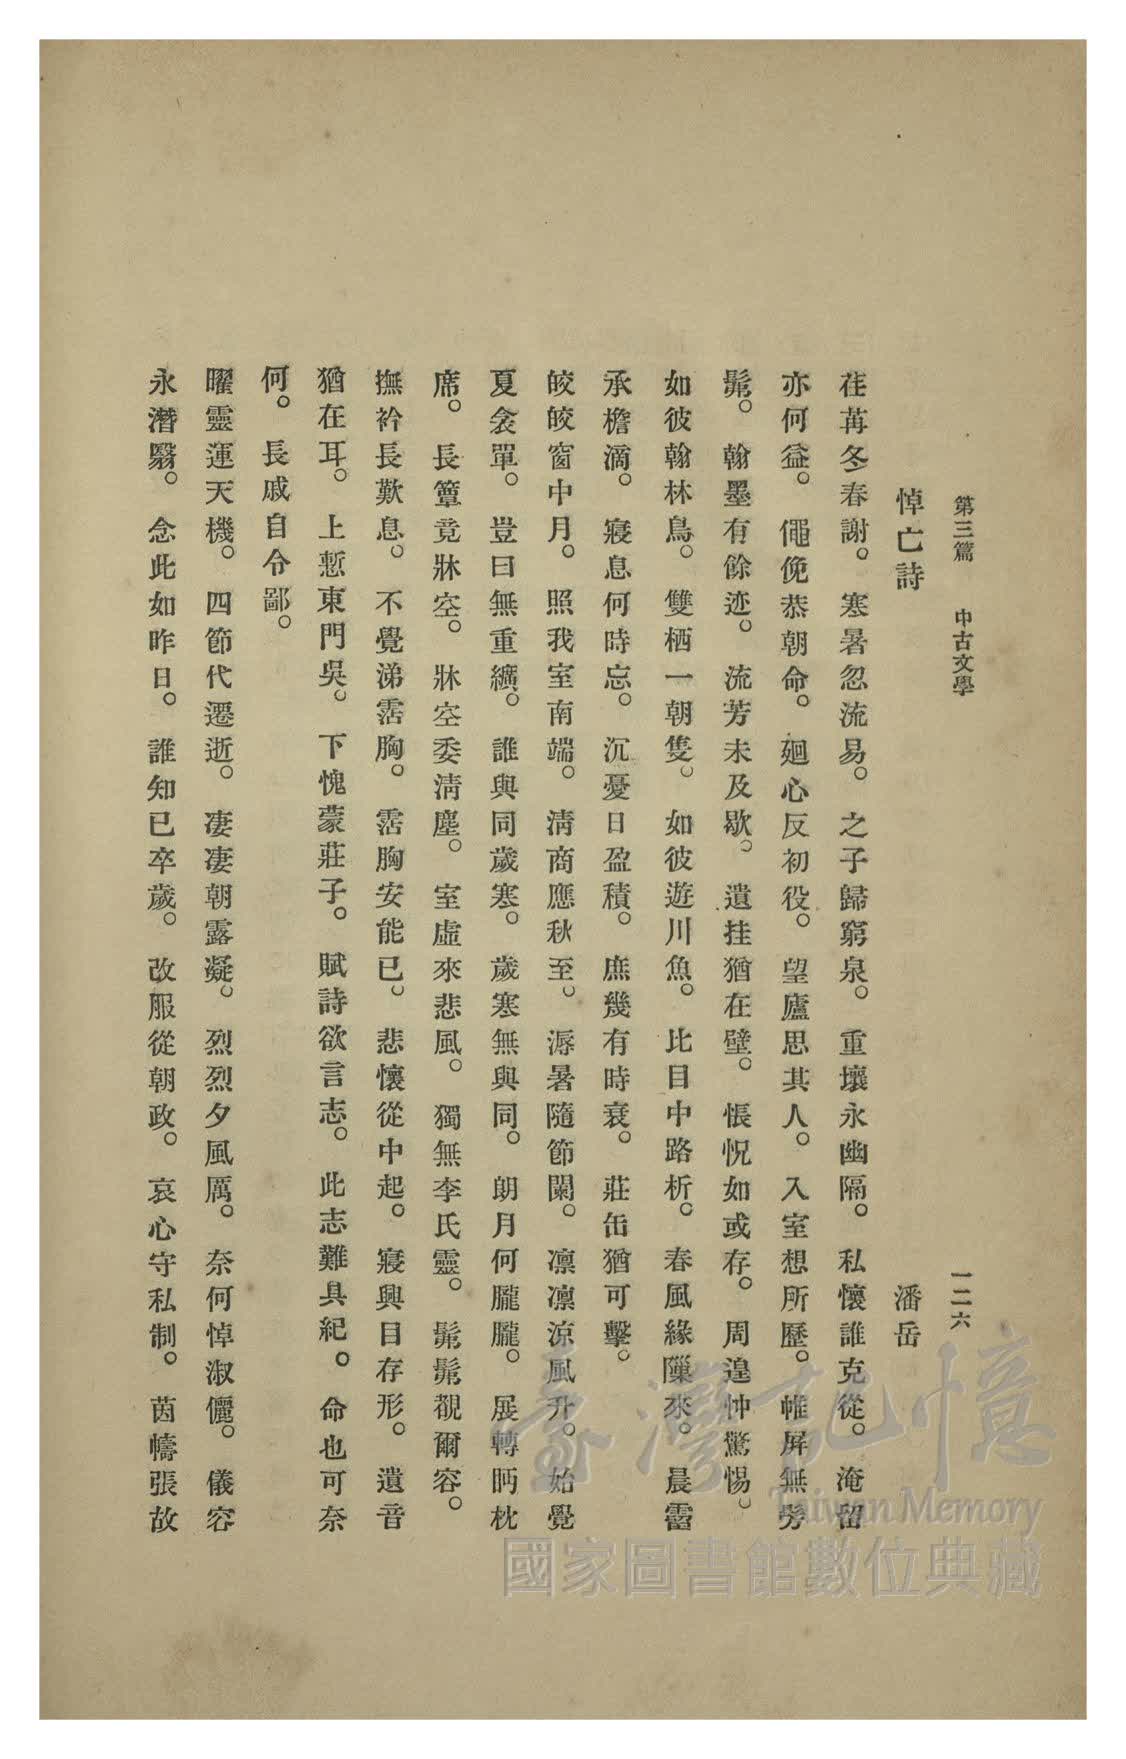 第三篇　中古文學　一二六
悼亡詩　潘岳
荏苒冬春謝。寒暑忽流易。之子歸窮泉。重壤永幽隔。私懷誰克從。淹留
亦何益。僶俛恭朝命。廻心反初役。望廬思其人。入室想所歷。帷屏無髣
髴。翰墨有餘迹。流芳未及歇。遺挂猶在壁。悵怳如或存。周遑忡驚惕。
如彼翰林鳥。雙栖一朝隻。如彼遊川魚。比目中路析。春風緣隟來。晨霤
承檐滴。寢息何時忘。沉憂日盈積。庶幾有時衰。莊缶猶可擊。
皎皎窗中月。照我室南端。淸商應秋至。溽暑隨節闌。凛凛涼風升。始覺
夏衾單。豈曰無重纊。誰與同歲寒。歲寒無與同。朗月何朧朧。展轉眄枕
席。長簟竟牀空。牀空委淸塵。室虛來悲風。獨無李氏靈。髴髴覩爾容。
撫衿長歎息。不覺涕霑胸。霑胸安能已。悲懷從中起。寢興目存形。遺音
猶在耳。上慙東門吳。下愧蒙莊子。賦詩欲言志。此志難具紀。命也可奈
何。長戚自令鄙。
曜靈運天機。四節代遷逝。凄凄朝露凝。烈烈夕風厲。奈何悼淑儷。儀容
永潛翳。念此如昨日。誰知已卒歲。改服從朝政。哀心守私制。茵幬張故
臺灣記憶
Taiwan Memory
國家圖書館數位典藏